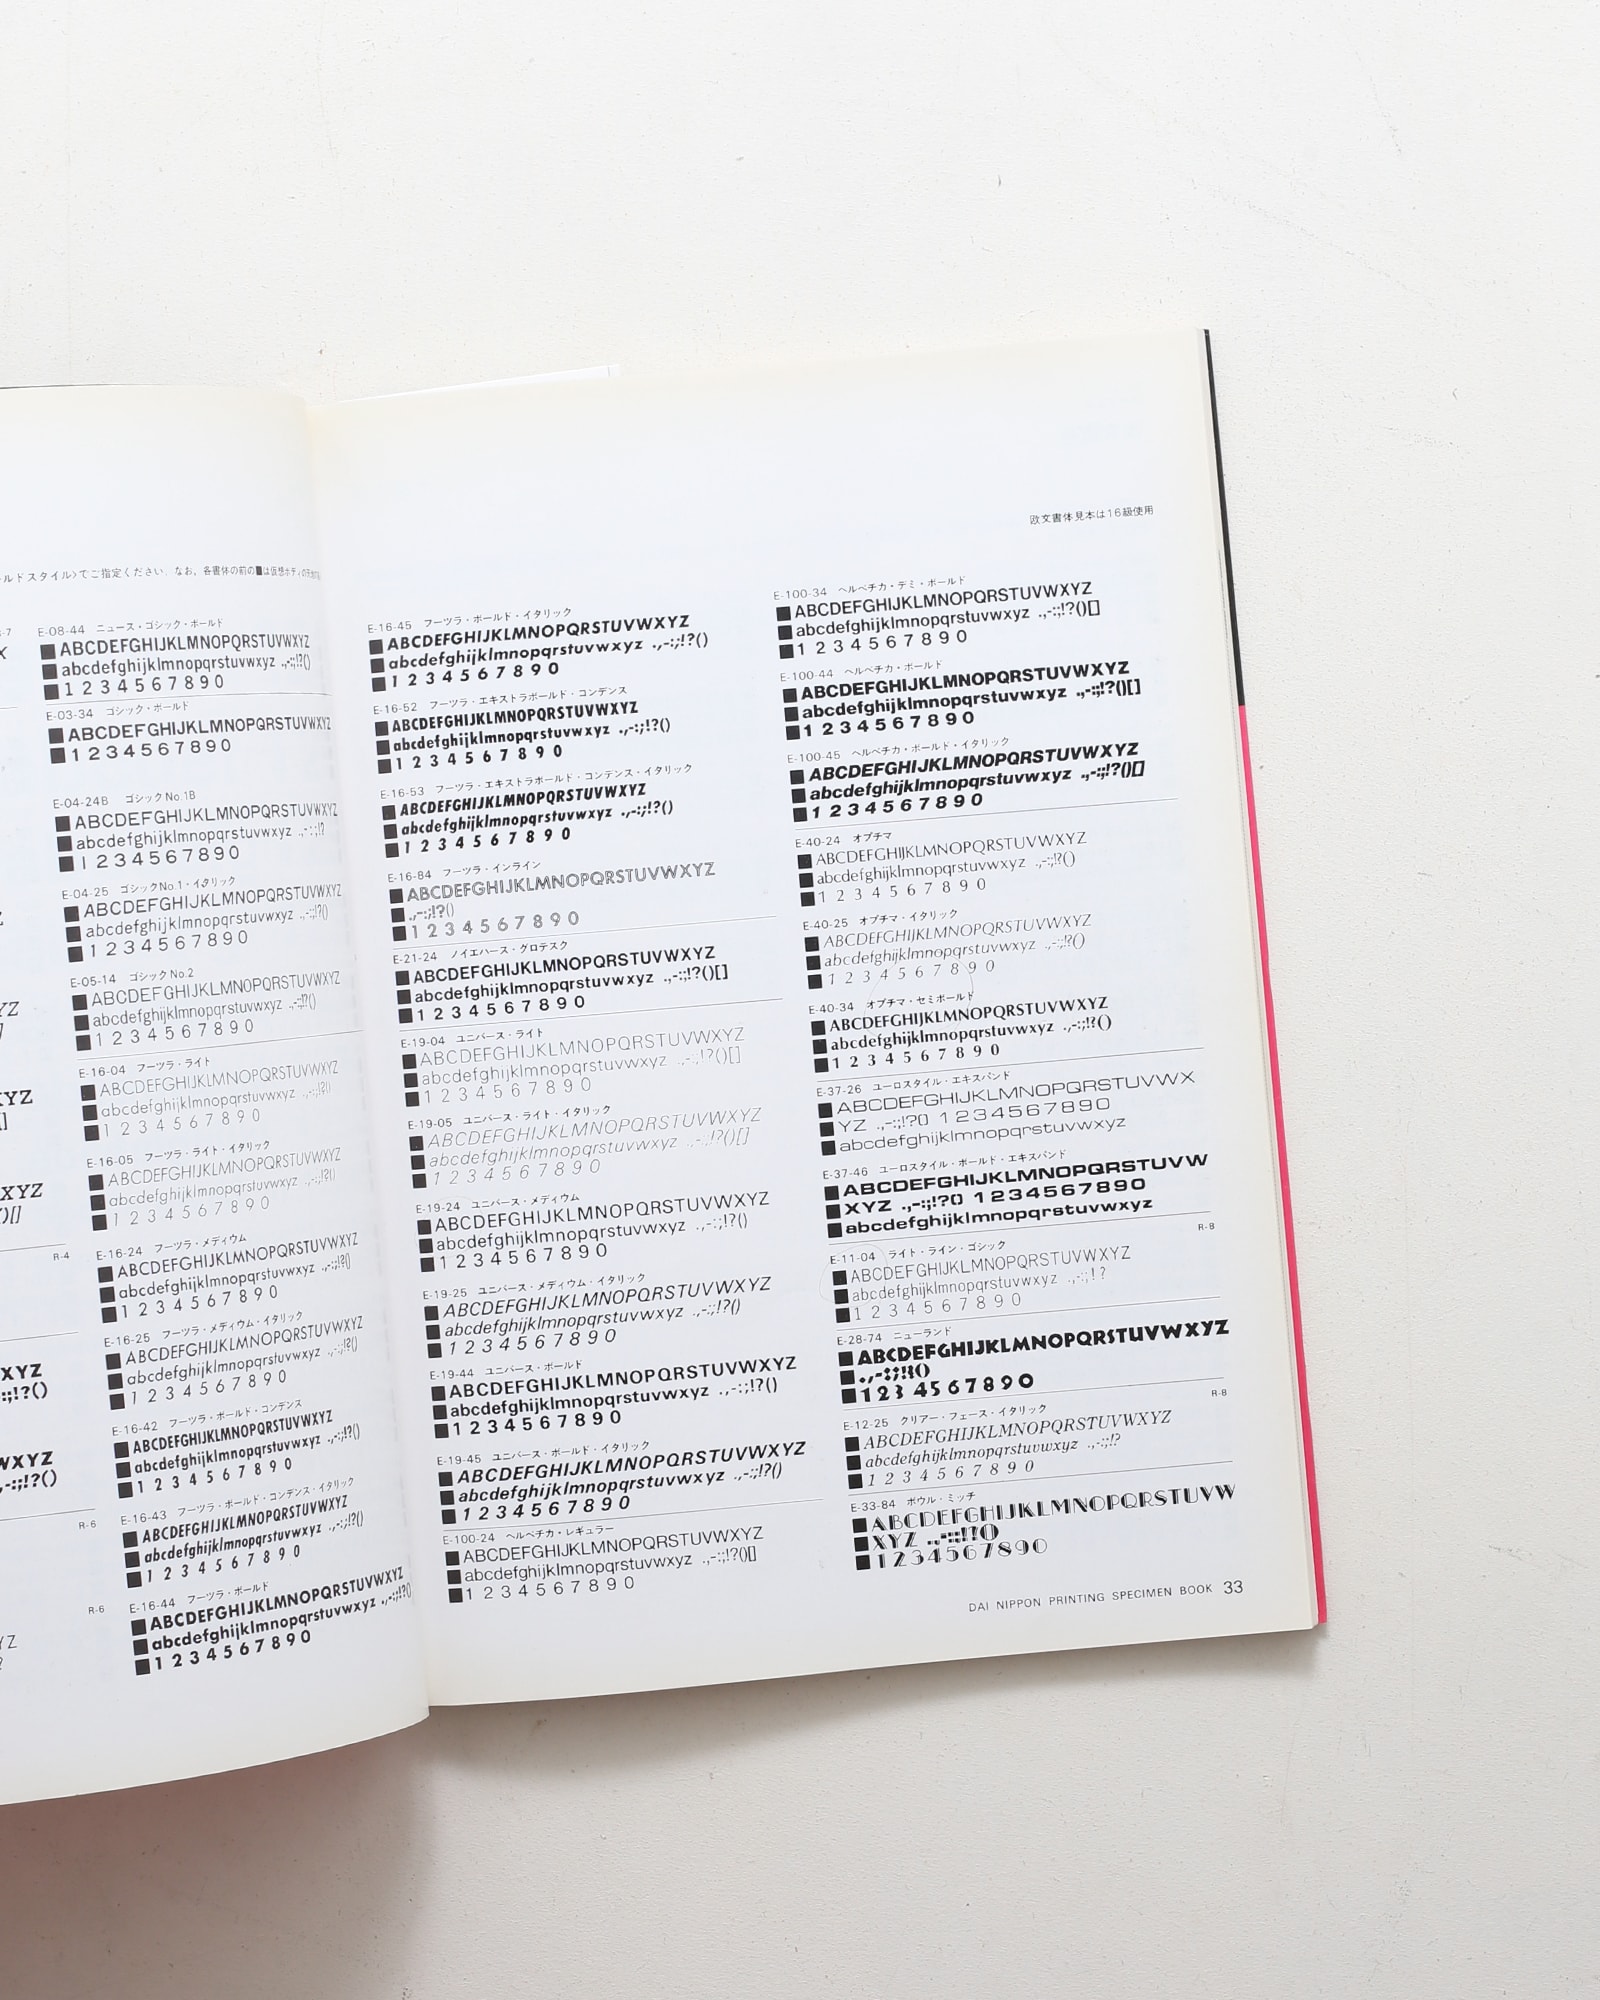 ルドスタイル〉でご指定ください。なお、各書体の前の■は仮想ボディの
-7
X
YZ
]
XYZ
]
XYZ
)[]
R-4
XYZ
:;!?()
WXYZ
,-:;!?()
R-6
R-6
YZ
?
E-08-44 ニュース・ゴシック・ボールド
■ABCDEFGHIJKLMNOPQRSTUVWXYZ
■abcdefghijklmnopqrstuvwxyz .,-:;!?()
■1 2 3 4 5 6 7 8 9 0
E-03-34 ゴシック・ボールド
■ABCDEFGHIJKLMNOPQRSTUVWXYZ
■1 2 3 4 5 6 7 8 9 0
E-04-24B ゴシックNo.1B
■ABCDEFGHIJKLMNOPQRSTUVWXYZ
■abcdefghijklmnopqrstuvwxyz .,-:;!?
■1 2 3 4 5 6 7 8 9 0
E-04-25 ゴシックNo.1・イタリック
■ABCDEFGHIJKLMNOPQRSTUVWXYZ
■abcdefghijklmnopqrstuvwxyz .,-:;!?()
■1 2 3 4 5 6 7 8 9 0
E-05-14 ゴシックNo.2
■ABCDEFGHIJKLMNOPQRSTUVWXYZ
■abcdefghijklmnopqrstuvwxyz .,-:;!?()
■1 2 3 4 5 6 7 8 9 0
E-16-04 フーツラ・ライト
■ABCDEFGHIJKLMNOPQRSTUVWXYZ
■abcdefghijklmnopqrstuvwxyz .,-:;!?()
■1 2 3 4 5 6 7 8 9 0
E-16-05 フーツラ・ライト・イタリック
■ABCDEFGHIJKLMNOPQRSTUVWXYZ
■abcdefghijklmnopqrstuvwxyz .,-:;!?()
■1 2 3 4 5 6 7 8 9 0
E-16-24 フーツラ・メディウム
■ABCDEFGHIJKLMNOPQRSTUVWXYZ
■abcdefghijklmnopqrstuvwxyz .,-:;!?()
■1 2 3 4 5 6 7 8 9 0
E-16-25 フーツラ・メディウム・イタリック
■ABCDEFGHIJKLMNOPQRSTUVWXYZ
■abcdefghijklmnopqrstuvwxyz .,-:;!?()
■1 2 3 4 5 6 7 8 9 0
E-16-42 フーツラ・ボールド・コンデンス
■ABCDEFGHIJKLMNOPQRSTUVWXYZ
■abcdefghijklmnopqrstuvwxyz .,-:;!?()
■1 2 3 4 5 6 7 8 9 0
E-16-43 フーツラ・ボールド・コンデンス・イタリック
■ABCDEFGHIJKLMNOPQRSTUVWXYZ
■abcdefghijklmnopqrstuvwxyz .,-:;!?()
■1 2 3 4 5 6 7 8 9 0
E-16-44 フーツラ・ボールド
■ABCDEFGHIJKLMNOPQRSTUVWXYZ
■abcdefghijklmnopqrstuvwxyz .,-:;!?()
■1 2 3 4 5 6 7 8 9 0
欧文書体見本は16級使用
E-16-45 フーツラ・ボールド・イタリック
■ABCDEFGHIJKLMNOPQRSTUVWXYZ
■abcdefghijklmnopqrstuvwxyz .,-:;!?()
■1 2 3 4 5 6 7 8 9 0
E-16-52 フーツラ・エキストラボールド・コンデンス
■ABCDEFGHIJKLMNOPQRSTUVWXYZ
■abcdefghijklmnopqrstuvwxyz .,-:;!?()
■1 2 3 4 5 6 7 8 9 0
E-16-53 フーツラ・エキストラボールド・コンデンス・イタリック
■ABCDEFGHIJKLMNOPQRSTUVWXYZ
■abcdefghijklmnopqrstuvwxyz .,-:;!?()
■1 2 3 4 5 6 7 8 9 0
E-16-84 フーツラ・インライン
■ABCDEFGHIJKLMNOPQRSTUVWXYZ
■.,-:;!?()
■1 2 3 4 5 6 7 8 9 0
E-21-24 ノイエハース・グロテスク
■ABCDEFGHIJKLMNOPQRSTUVWXYZ
■abcdefghijklmnopqrstuvwxyz .,-:;!?()[]
■1 2 3 4 5 6 7 8 9 0
E-19-04 ユニバース・ライト
■ABCDEFGHIJKLMNOPQRSTUVWXYZ
■abcdefghijklmnopqrstuvwxyz .,-:;!?()[]
■1 2 3 4 5 6 7 8 9 0
E-19-05 ユニバース・ライト・イタリック
■ABCDEFGHIJKLMNOPQRSTUVWXYZ
■abcdefghijklmnopqrstuvwxyz .,-:;!?()[]
■1 2 3 4 5 6 7 8 9 0
E-19-24 ユニバース・メディウム
■ABCDEFGHIJKLMNOPQRSTUVWXYZ
■abcdefghijklmnopqrstuvwxyz .,-:;!?()
■1 2 3 4 5 6 7 8 9 0
E-19-25 ユニバース・メディウム・イタリック
■ABCDEFGHIJKLMNOPQRSTUVWXYZ
■abcdefghijklmnopqrstuvwxyz .,-:;!?()
■1 2 3 4 5 6 7 8 9 0
E-19-44 ユニバース・ボールド
■ABCDEFGHIJKLMNOPQRSTUVWXYZ
■abcdefghijklmnopqrstuvwxyz .,-:;!?()
■1 2 3 4 5 6 7 8 9 0
E-19-45 ユニバース・ボールド・イタリック
■ABCDEFGHIJKLMNOPQRSTUVWXYZ
■abcdefghijklmnopqrstuvwxyz .,-:;!?()
■1 2 3 4 5 6 7 8 9 0
E-100-24 ヘルベチカ・レギュラー
■ABCDEFGHIJKLMNOPQRSTUVWXYZ
■abcdefghijklmnopqrstuvwxyz .,-:;!?()[]
■1 2 3 4 5 6 7 8 9 0
E-100-34 ヘルベチカ・デミ・ボールド
■ABCDEFGHIJKLMNOPQRSTUVWXYZ
■abcdefghijklmnopqrstuvwxyz .,-:;!?()[]
■1 2 3 4 5 6 7 8 9 0
E-100-44 ヘルベチカ・ボールド
■ABCDEFGHIJKLMNOPQRSTUVWXYZ
■abcdefghijklmnopqrstuvwxyz .,-:;!?()[]
■1 2 3 4 5 6 7 8 9 0
E-100-45 ヘルベチカ・ボールド・イタリック
■ABCDEFGHIJKLMNOPQRSTUVWXYZ
■abcdefghijklmnopqrstuvwxyz .,-:;!?()[]
■1 2 3 4 5 6 7 8 9 0
E-40-24 オプチマ
■ABCDEFGHIJKLMNOPQRSTUVWXYZ
■abcdefghijklmnopqrstuvwxyz .,-:;!?()
■1 2 3 4 5 6 7 8 9 0
E-40-25 オプチマ・イタリック
■ABCDEFGHIJKLMNOPQRSTUVWXYZ
■abcdefghijklmnopqrstuvwxyz .,-:;!?()
■1 2 3 4 5 6 7 8 9 0
E-40-34 オプチマ・セミボールド
■ABCDEFGHIJKLMNOPQRSTUVWXYZ
■abcdefghijklmnopqrstuvwxyz .,-:;!?()
■1 2 3 4 5 6 7 8 9 0
E-37-26 ユーロスタイル・エキスパンド
■ABCDEFGHIJKLMNOPQRSTUVWX
■YZ .,-:;!?() 1 2 3 4 5 6 7 8 9 0
■abcdefghijklmnopqrstuvwxyz
E-37-46 ユーロスタイル・ボールド・エキスパンド
■ABCDEFGHIJKLMNOPQRSTUVW
■XYZ .,-:;!?() 1 2 3 4 5 6 7 8 9 0
■abcdefghijklmnopqrstuvwxyz
R-8
E-11-04 ライト・ライン・ゴシック
■ABCDEFGHIJKLMNOPQRSTUVWXYZ
■abcdefghijklmnopqrstuvwxyz .,-:;!?
■1 2 3 4 5 6 7 8 9 0
E-28-74 ニューランド
■ABCDEFGHIJKLMNOPQRSTUVWXYZ
■.,-:;!?()
■1 2 3 4 5 6 7 8 9 0
R-8
E-12-25 クリアー・フェース・イタリック
■ABCDEFGHIJKLMNOPQRSTUVWXYZ
■abcdefghijklmnopqrstuvwxyz .,-:;!?
■1 2 3 4 5 6 7 8 9 0
E-33-84 ボウル・ミッチ
■ABCDEFGHIJKLMNOPQRSTUVW
■XYZ .,-:;!?()
■1 2 3 4 5 6 7 8 9 0
DAI NIPPON PRINTING SPECIMEN BOOK 33